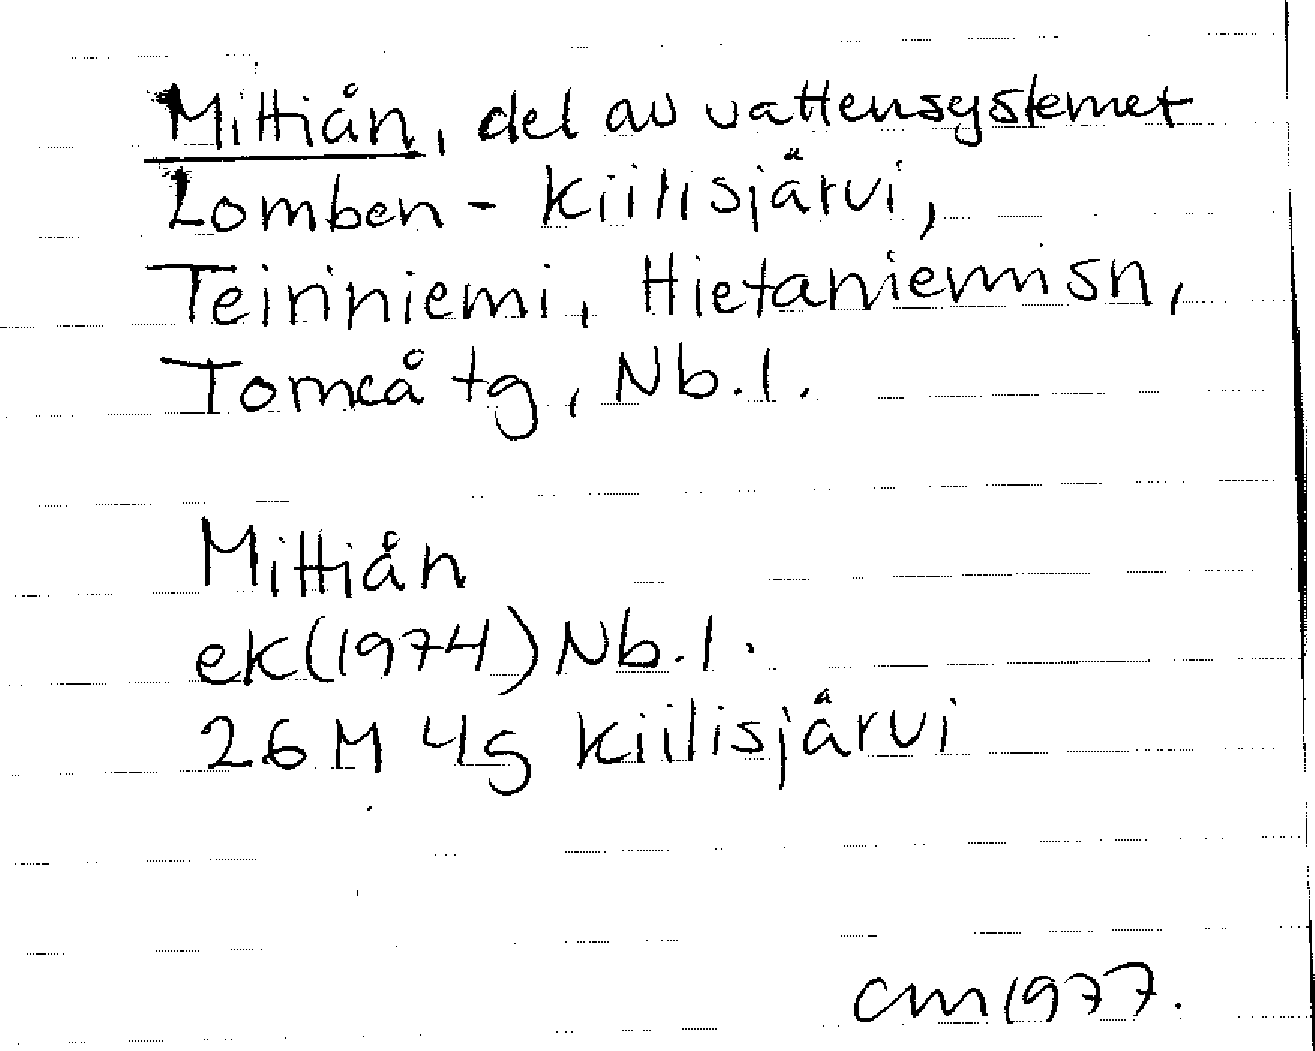 Mittiån, del av vattensystemet
Lomben - Kiilisjärvi,
Teiriniemi, Hietaniemi sn,
Torneå tg, Nb. l.
Mittiån
ek (1974) Nb. l.
26 M 4g Kiilisjärvi
CM 1977.